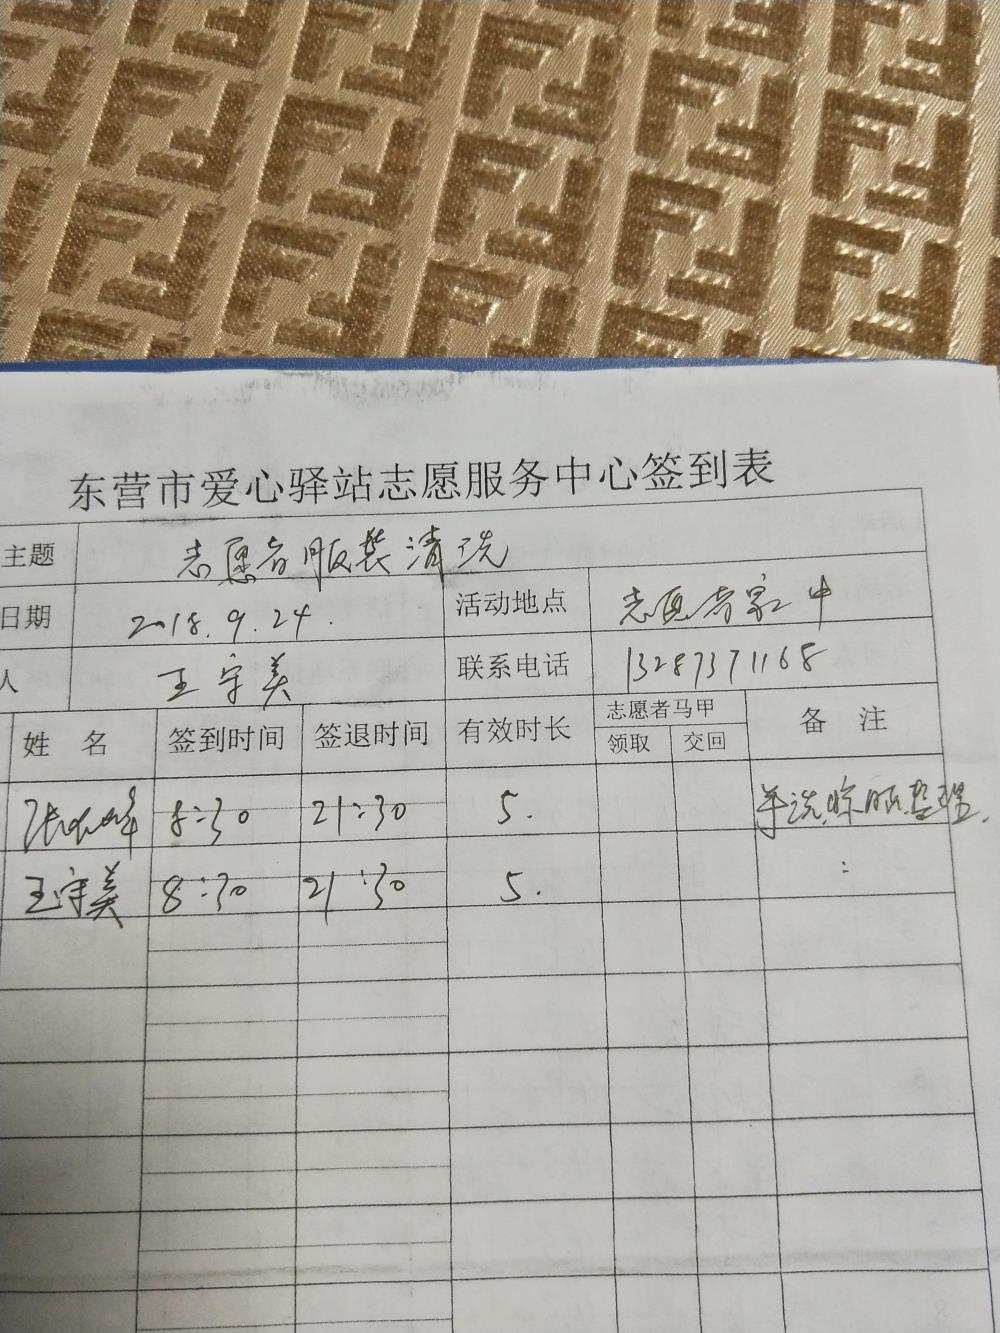 东营市爱心驿站志愿服务中心签到表
主题 志愿者服装清洗
日期 2018.9.24. 活动地点 志愿者家中
人 王守美 联系电话 13287371168
姓 名 签到时间 签退时间 有效时长 志愿者马甲 备 注
领取 交回
8:30 21:30 5. 手洗.晾晒.整理.
王守美 8:30 21:30 5. :